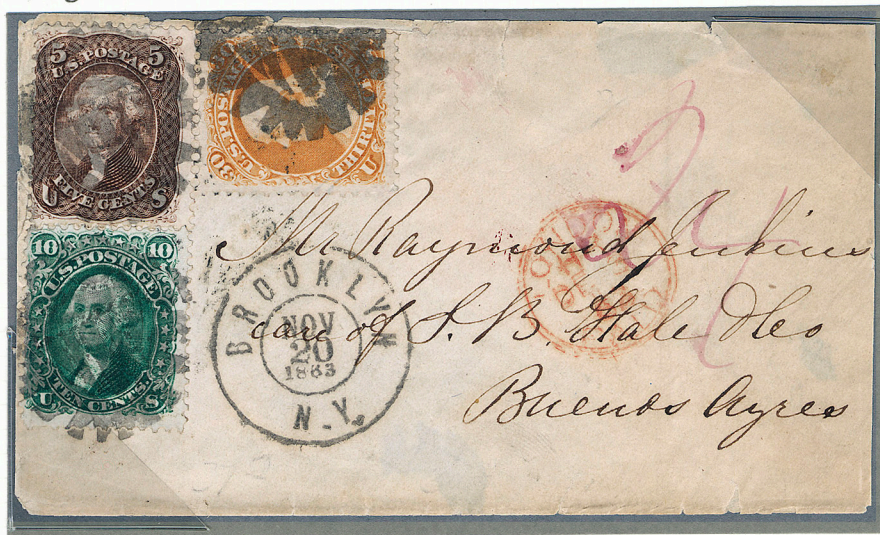 5 5
U.S. POSTAGE
FIVE CENTS
U S
30
U.S. POSTAGE
THIRTY
U
10 10
U.S. POSTAGE
TEN CENTS.
U S
BROOKLYN
NOV
20
1863
N.Y.
Mr Raymond Jenkins
care of S. B. Hale & Co
Buenos Ayres